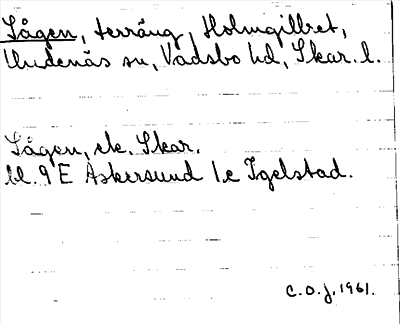 Sågen, terräng, Holmgillret,
Undenäs sn, Vadsbo hd, Skar. l.
Sågen, ek. Skar.
bl. 9 E Askersund 1e Igelstad.
C.O.J. 1961.